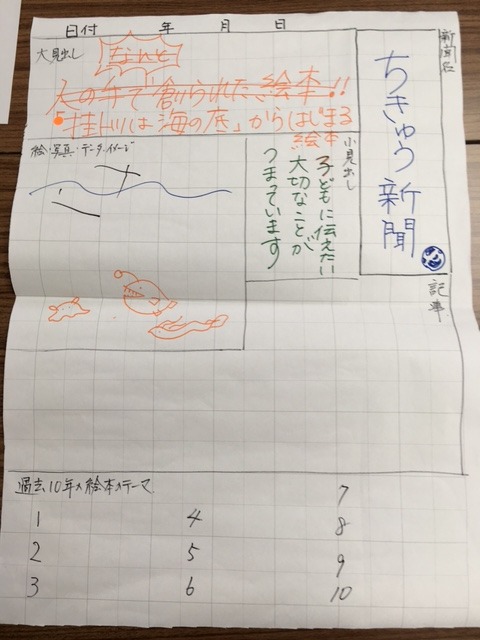 日付 年 月 日
新聞名
ちきゅう新聞
大見出し
なんと
人の手で創られた絵本!!
」からはじまる
絵本
小見出し
子どもに伝えたい
大切なことが
つまっています
絵・写真・データ・イメージ
記事
過去10年の絵本のテーマ
1 4 7
2 5 8
3 6 9
10